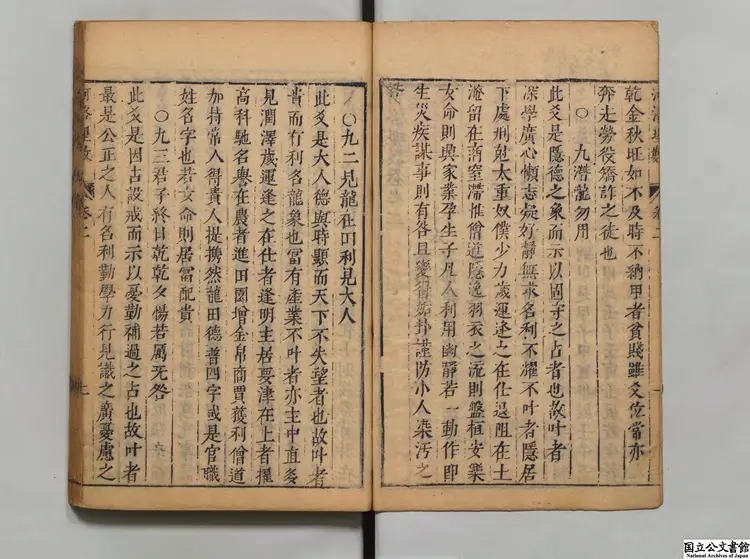 乾金秋旺如不及時不納甲者貧賤雖爻位當亦
奔走勞役矯詐之徒也
○九潛龍勿用
此爻是隱德之象而示以固守之占者也故叶者
深學廣心懶志疑好靜無求名利不耀不叶者隱居
下處刑尅太重奴僕少力歲運逢之在仕退阻在士
淹留在商窒滯惟僧道隱逸羽衣之流則盤桓安樂
女命則興家業孕生子凡人利用幽靜若一動作即
生災疾謀事則有咎且變得姤卦謹防小人染汚之
咎
○九二見龍在田利見大人
此爻是大人德與時顯而天下不失望者也故叶者
貴而有利名龍象也當有產業不叶者亦主中直多
見潤澤歲運逢之在仕者逢明主居要津在上者擢
高科馳名譽在農者進田園增金帛商賈獲利僧道
加持常人得貴人提携然龍田德普四字或是官職
姓名字也若女命則居富配貴
○九三君子終日乾乾夕惕若厲无咎
此爻是因占設戒而示以憂勤補過之占也故叶者
最是公正之人有名利勤學力行見識之廣憂慮之
国立公文書館
National Archives of Japan